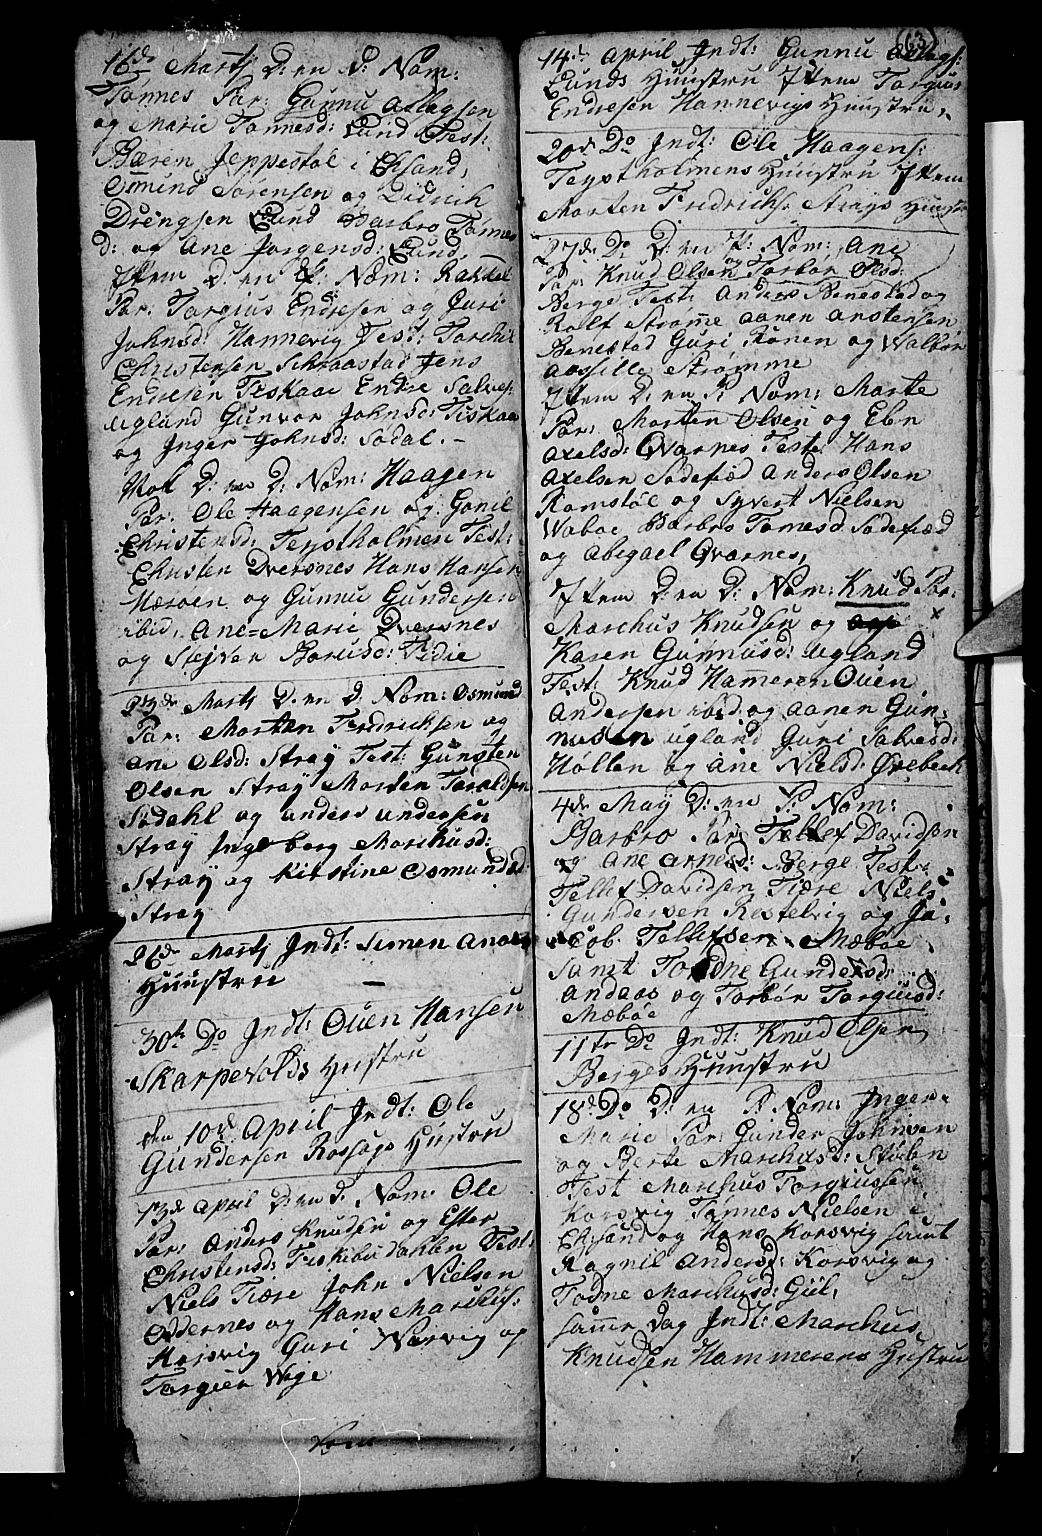 16de Martj D: en P: Nom:
Tonnes Par: Gunnu Asslagsen
og Marie Tonnesd: Lund Test:
Bæren Jeppestøl i Chsand,
Osmund Sørensen og Didrich
Drengsen Lund Barbro Tønnes
d: og Ane Jørgensd: Lund,
Item D: en P: Nom: Rakkel
Par: Targius Endresen og Guri
Johnsd: Hannevig Test: Torchil
Christensen Schraastad Jens
Endresen Fiskaae Endre Salves:
Ugland Gunvor Johnsd: Fiskaa
og Inger Johnsd: Sødal. -
Nok D: en D: Nom: Haagen
Par: Ole Haagensen og Gonil
Christensd: Tejstholmen Test:
Christen Dversnes Hans Hansen
Mæroen og Gunnu Gundersen
ibid, Ane=Marie Dversnes
og Stejven Borusd: Fidie
23de Martj D: en D: Nom: Osmund
Par: Morten Fredrichsen og
Ane Olsd: Straj Test: Gunsten
Olsen Straj Morten Taraldsen
Sødahl og Anders Andersen
Straj Ingeborg Marchusd:
Straj og Kirstine Osmundsd:
Straj
26de Martj Indt: Simen Anders
Huustru
30te Do Indt: Ouen Hansen
Skarpevolds Hustru
den 10de April Indt: Ole
Gundersen Rossøgs Hustru
13de April D: en D: Nom: Ole
Par: Anders Knudsen og Ester
Christensd: Fiskebudahlen Test:
Niels Tiære John Nielsen
Oddernes og Hans Marchus:
Korsvig Guri Narvig og
Targier Waje
14de April Indt: Gunnu Aslags:
Lunds Huustru Item Targius
Endresen Hannevigs Huustru,
20de Do Indt: Ole Haagens:
Tejstholmens Huustru Item
Morten Fridrichs: Strajs Huustr
27de Do D: en P: Nom: Ane
Par: Knud Olsen og Tarbør Olsd:
Berge Test: Anders Benestad og
Rolf Strømme Aanen Anstensen
Benestad Guri Konen og Walbør
Aassille Strømme
Item D: en P: Nom: Marte
Par: Morten Olsen og Ebn
Axelsd: Qvarnes Test: Hans
Axelsen Sødefiød Anders Olsen
Ramstøe og Syvert Nielsen
Waboe Barbro Tomesd: Sødefiæd
og Abigael Qvarnes,
Item D: en D: Nom: Knud Par:
Marchus Knudsen og
Karen Gunnusd: Ugland
Test: Knud Hameren Ouen
Andersen ibid og Aanen Gun-
nusen Ugland Guri Salvesd:
Høllen og Ane Nielsd: Øxlebech
4de Maij D: en P: Nom:
Barbro Par: Tellef Davidsen
og Ane Arnesd: Berge Test:
Tellef Davidsen Tiære Niels
Gundersen Restelvig og Ja-
cob Tellefsen Mæboe
samt Todne Gundersd:
Andaas og Tarbør Targiusd:
Mæboe
11te Do Indt: Knud Olsen
Berges Huustru
18de Do D: en P: Nom: Inger-
Marie Par: Gunder Johnsen
og Berte Marchusd: Stubn
Test Marchus Torgiussen
Korsvig Tønnes Nielsen i
Chsand og Hans Korsvig samt
Ragnil Andersd: Korsvig og
Todne Marchusd: Giil,
samme Dag Indt: Marchus
Knudsen Hammerens Hustru